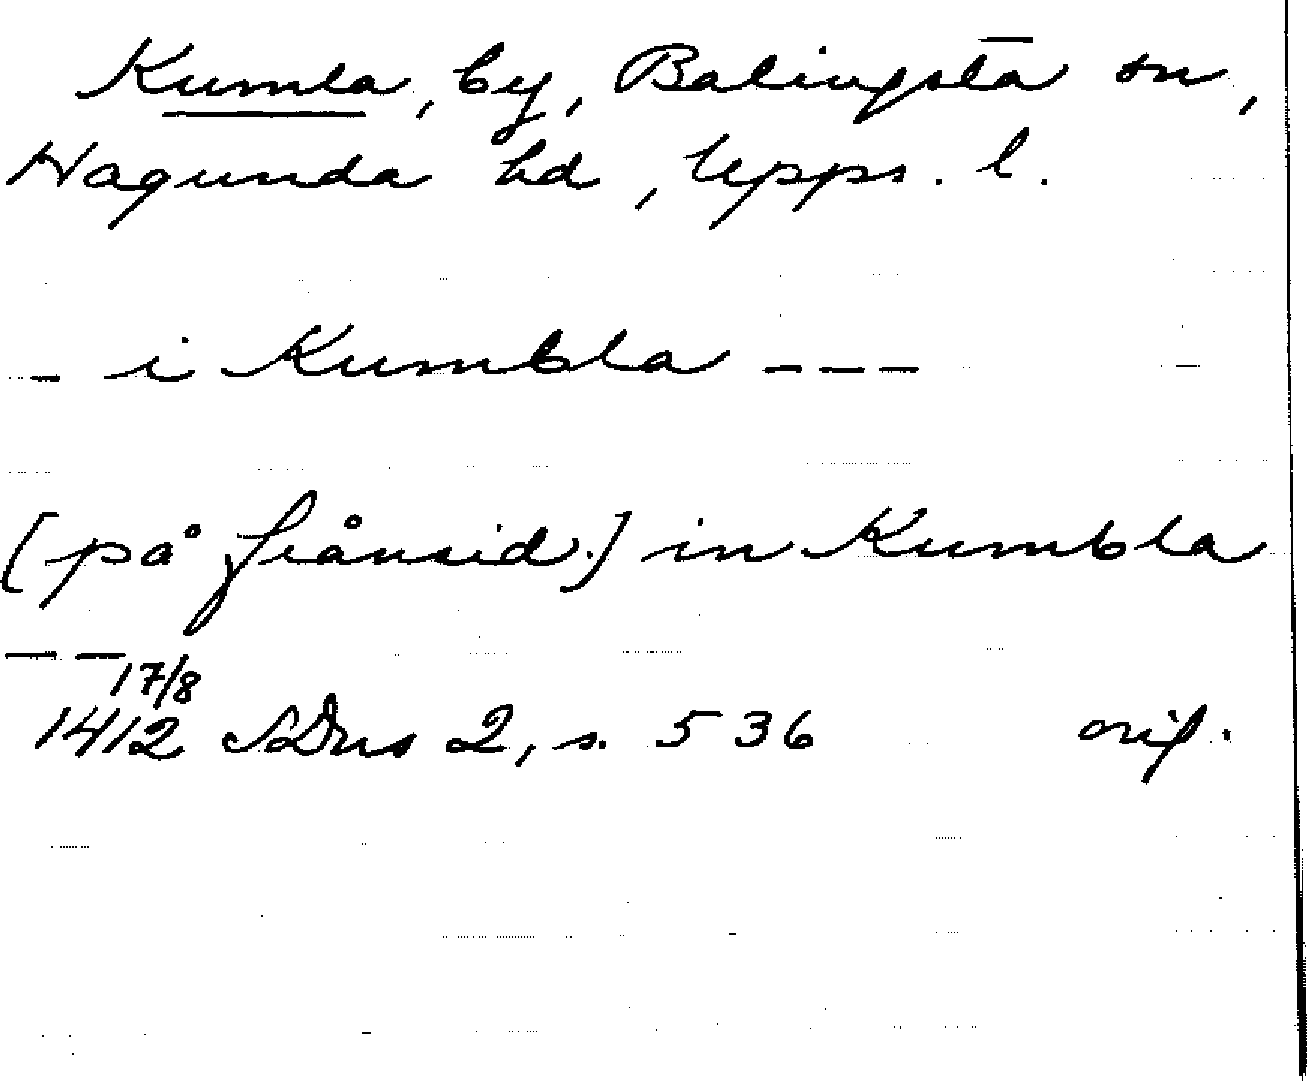 Kumla, by, Balingsta sn,
Hagunda hd, Upps. l.
– i Kumbla – – –
(på frånsid.) in Kumbla
– – 17/8
1412 SDns 2, s. 536 orig.